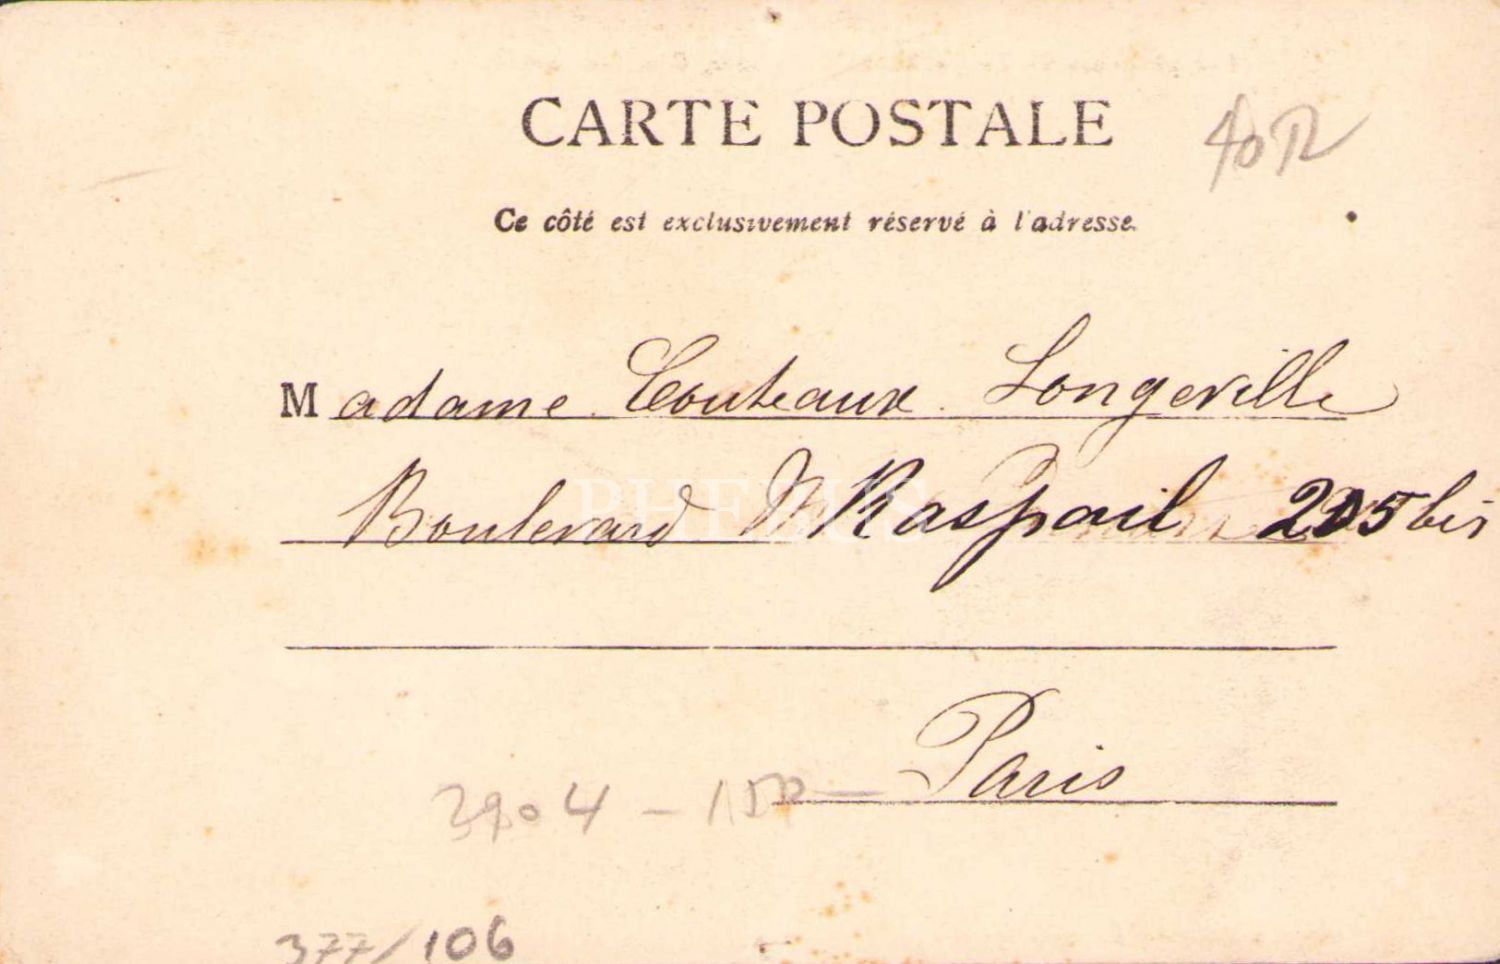 CARTE POSTALE
40
Ce côté est exclusivement réservé à l'adresse.
Madame Couteaux Longeville
Boulevard Raspail 205 bis
PHEBUS
Paris
3904 - 15
377/106